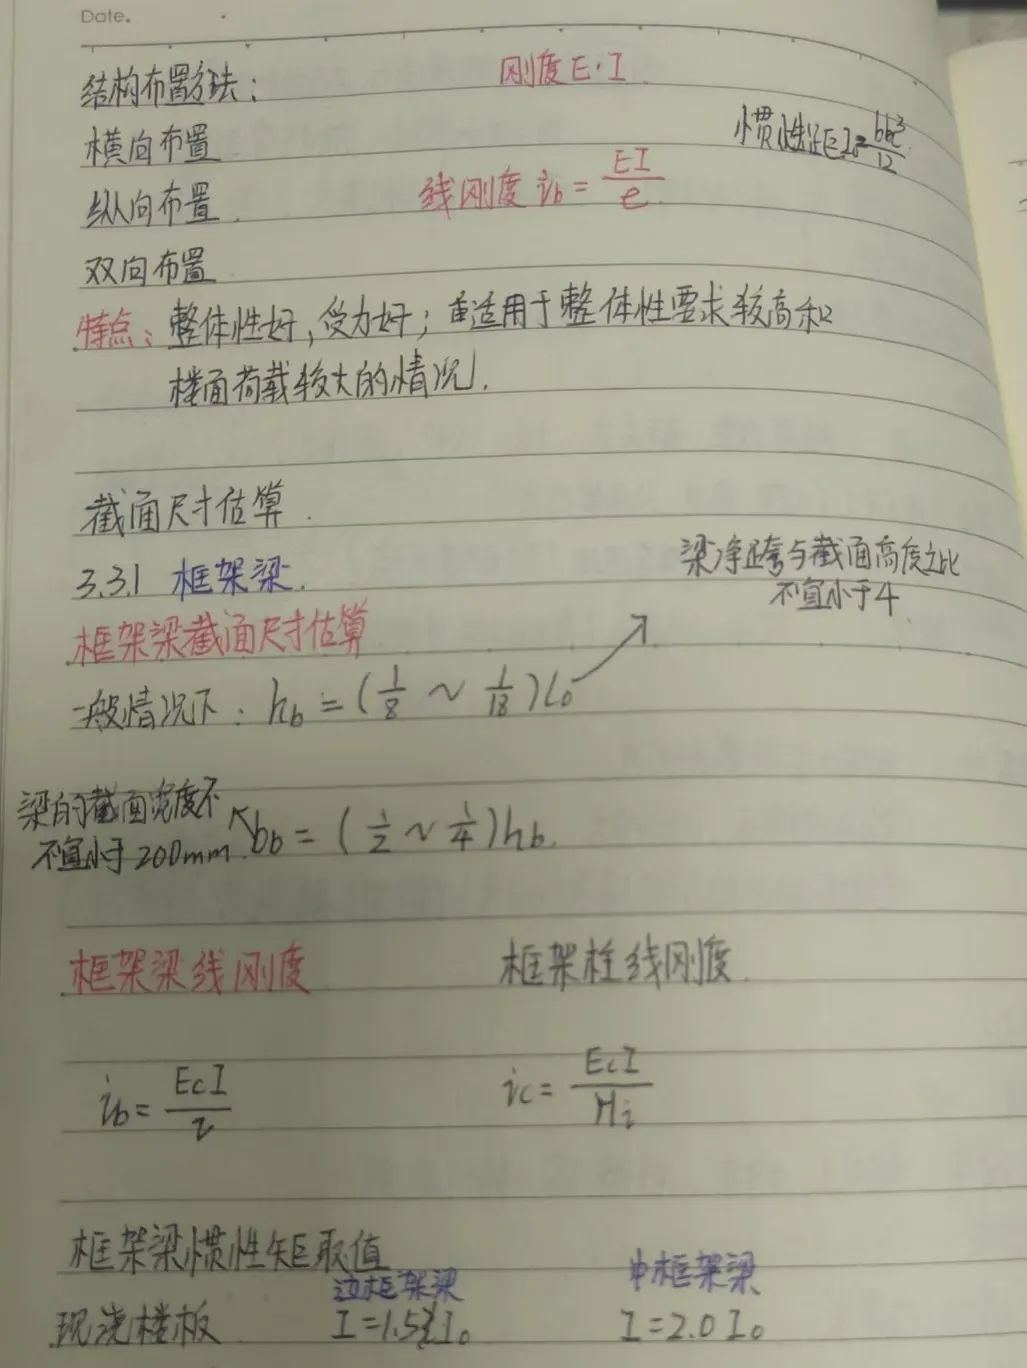 Date.
结构布置方法：
刚度E·I
横向布置
惯性矩I₀=bh³/12
纵向布置
线刚度 ib=EI/e
双向布置
特点：整体性好，受力好；适用于整体性要求较高和
楼面荷载较大的情况.
截面尺寸估算
3.3.1 框架梁.
梁净跨与截面高度之比
不宜小于4
框架梁截面尺寸估算
一般情况下：hb=(1/8～1/18)l₀
梁的截面宽度不
不宜小于200mm.
bb=(1/2～1/4)hb.
框架梁线刚度
框架柱线刚度.
ib=EcI/l
ic=EcI/Hi
框架梁惯性矩取值
边框架梁
中框架梁
现浇楼板
I=1.5I₀
I=2.0I₀